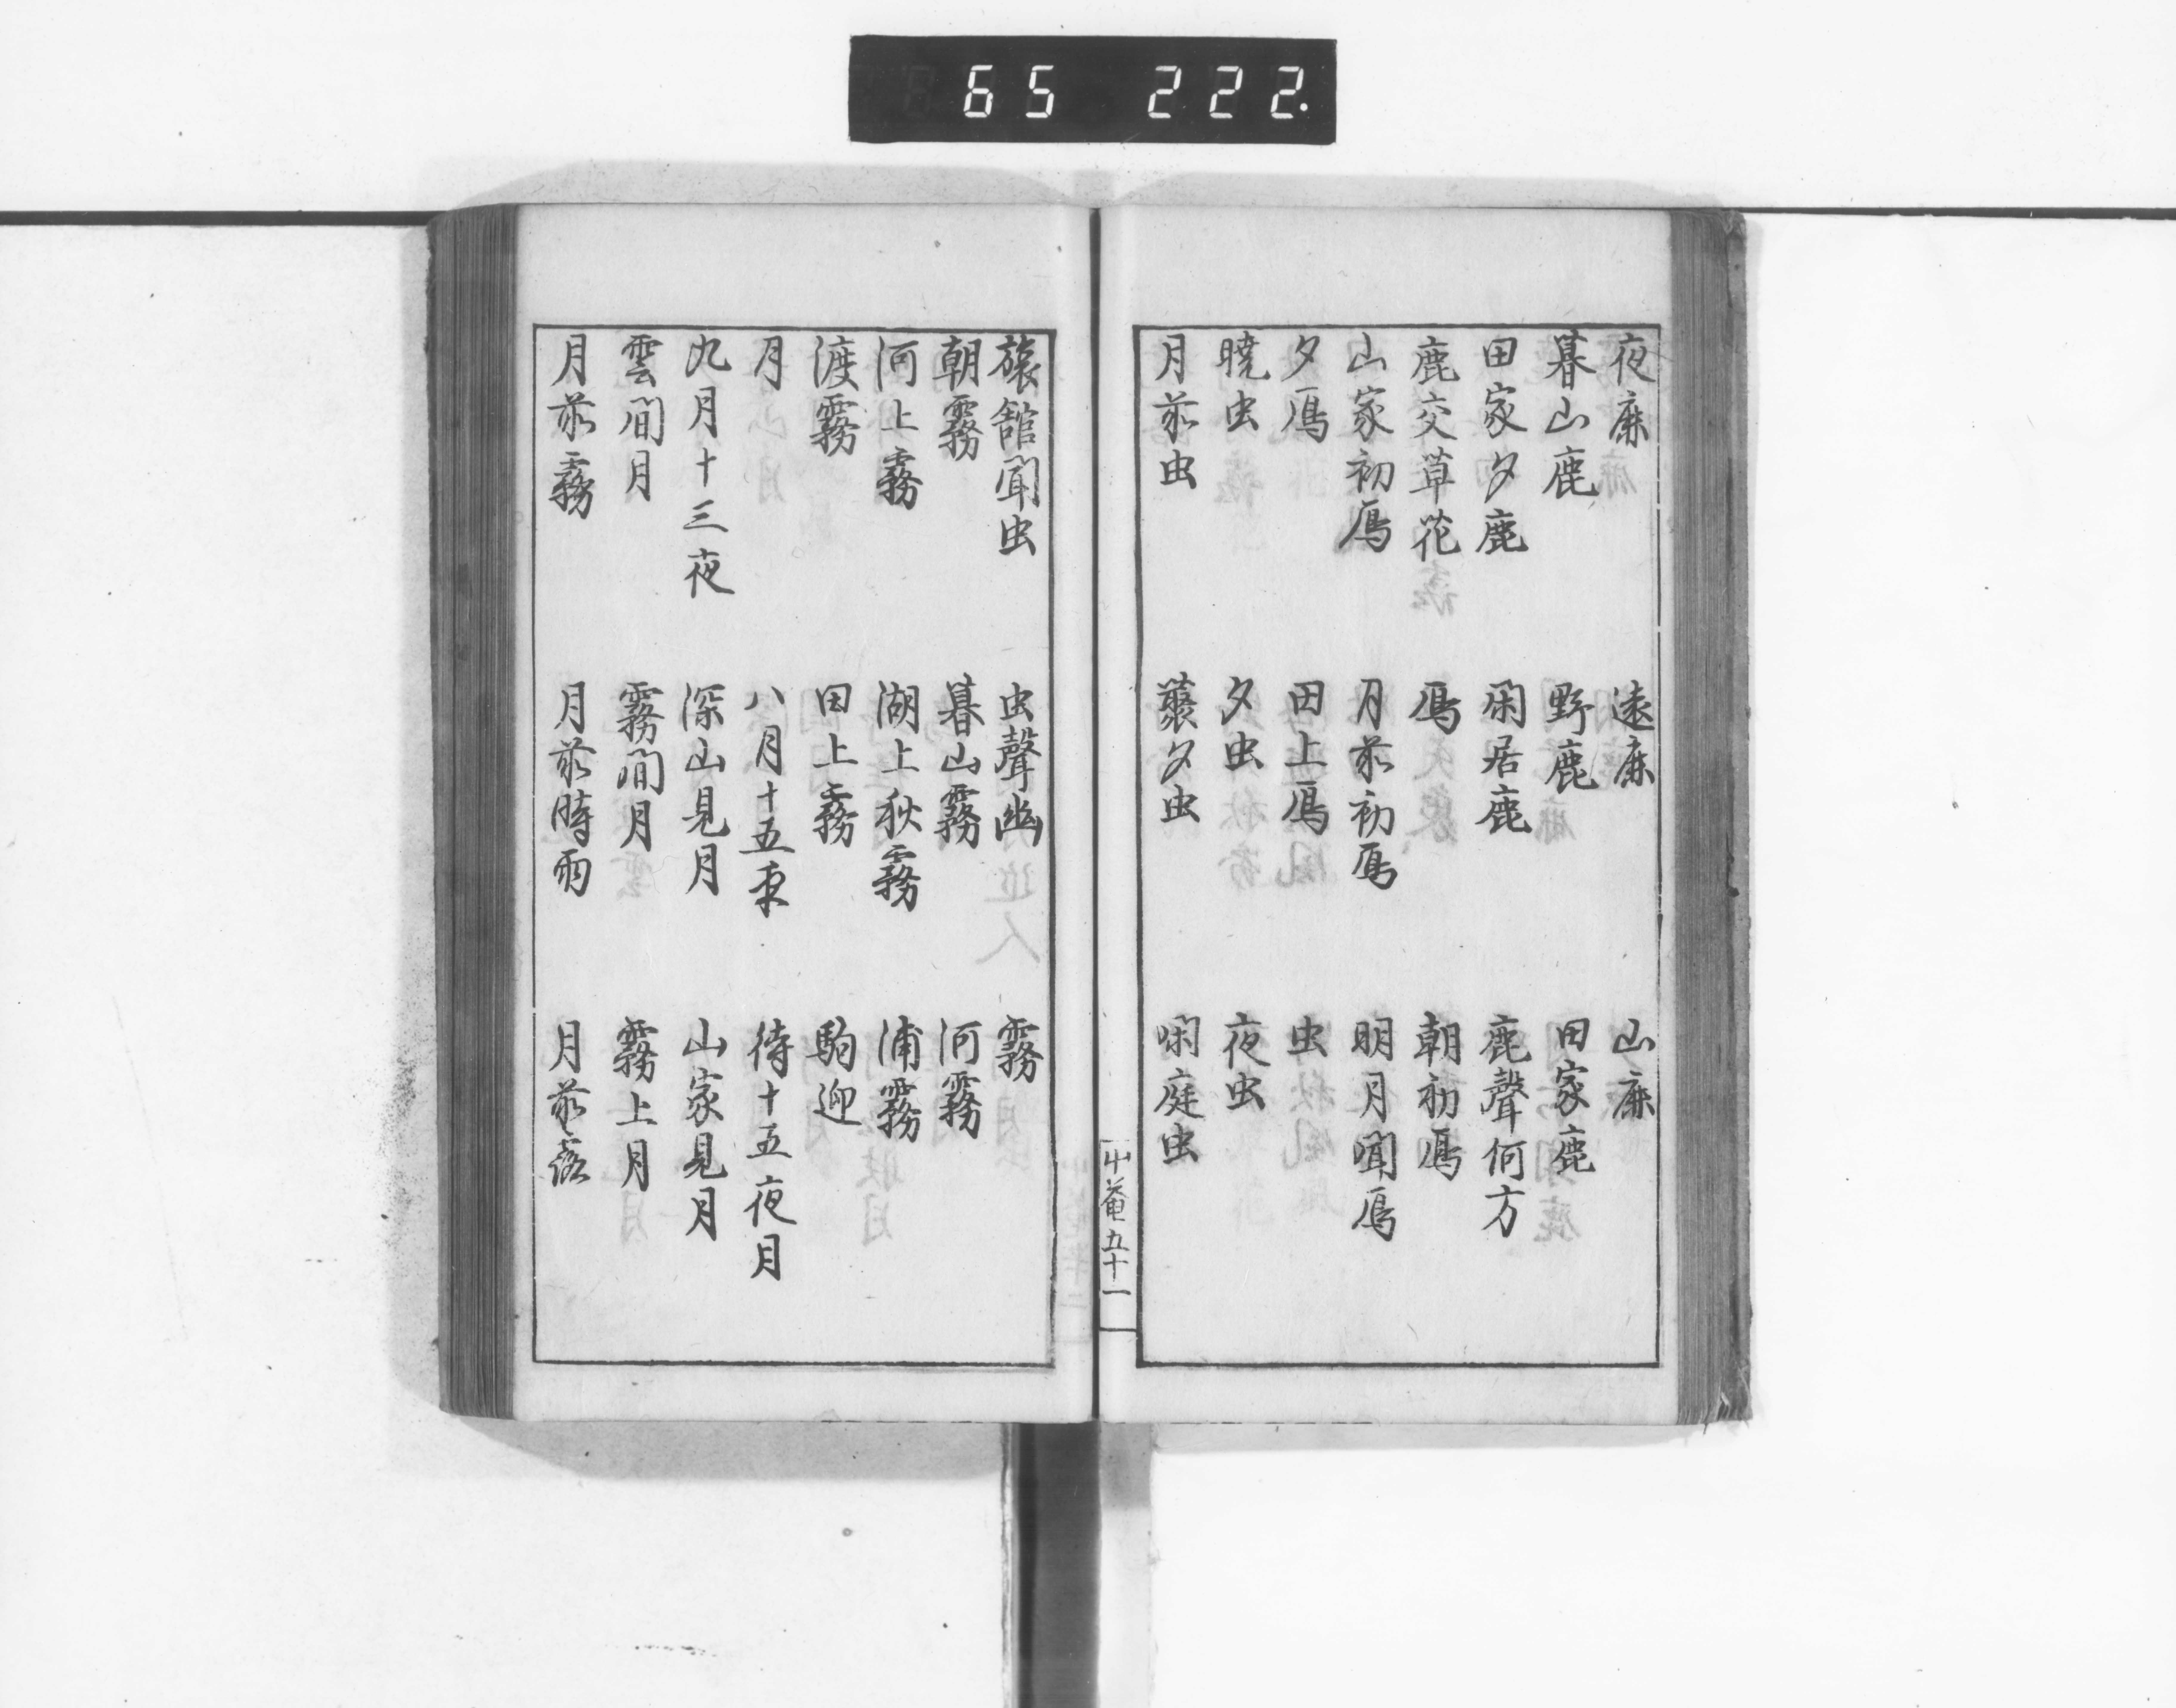 65 222.
夜鹿 遠鹿 山鹿
暮山鹿 野鹿 田家鹿
田家夕鹿 閑居鹿 鹿聲何方
鹿交草花 鴈 朝初鴈
山家初鴈 月前初鴈 明月聞鴈
夕鴈 田上鴈 虫
曉虫 夕虫 夜虫
月前虫 叢夕虫 閑庭虫
中菴五十一
旅舘聞虫 虫聲幽 霧
朝霧 暮山霧 河霧
河上霧 湖上秋霧 浦霧
渡霧 田上霧 駒迎
月 八月十五夜 待十五夜月
九月十三夜 深山見月 山家見月
雲間月 霧間月 霧上月
月前霧 月前時雨 月前露